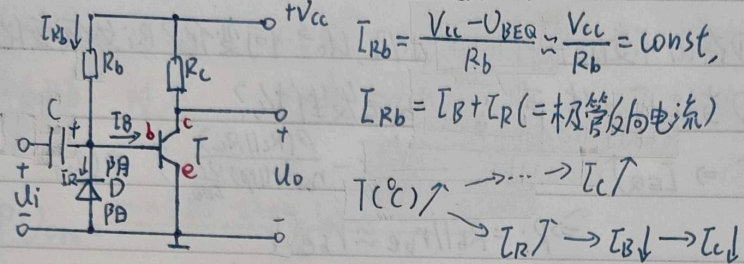 +Vcc
I_Rb↓ Rb Rc
C + I_B → b c T e
+ I_R↓ 阴 D 阳 + Uo
Ui - -
I_Rb = (Vcc - U_BEQ)/Rb ≈ Vcc/Rb = const,
I_Rb = I_B + I_R (二极管反向电流)
T(℃)↑ →···→ I_C↑
↘ I_R↑ → I_B↓ → I_C↓